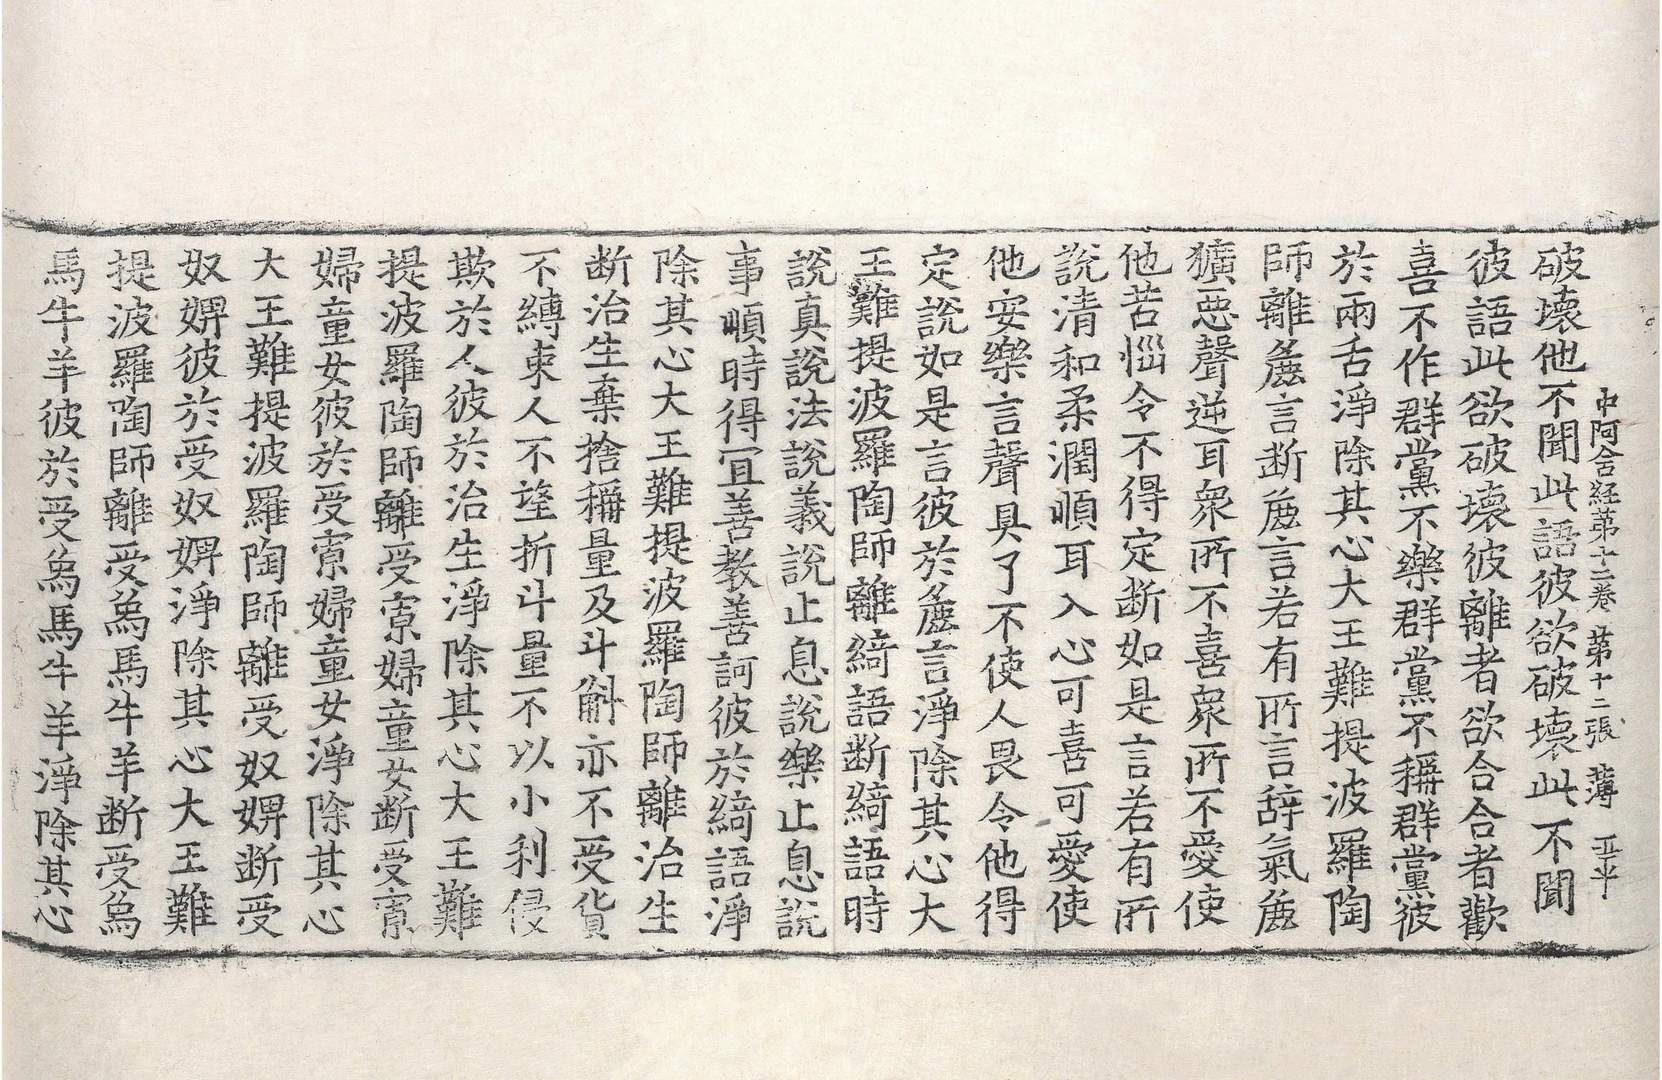 中阿含経第十二卷 第十二張 薄 亚平
破壞他不聞此語彼欲破壞此不聞
彼語此欲破壞彼離者欲合合者歡
喜不作群黨不樂群黨不稱群黨彼
於兩舌淨除其心大王難提波羅陶
師離麁言断麁言若有所言辞氣麁
獷惡聲逆耳衆所不喜衆所不愛使
他苦惱令不得定断如是言若有所
說清和柔潤順耳入心可喜可愛使
他安樂言聲具了不使人畏令他得
定說如是言彼於麁言淨除其心大
王難提波羅陶師離綺語断綺語時
說真說法說義說止息說樂止息說
事順時得冝善教善訶彼於綺語淨
除其心大王難提波羅陶師離治生
断治生棄捨稱量及斗斛亦不受貨
不縛束人不望折斗量不以小利侵
欺於人彼於治生淨除其心大王難
提波羅陶師離受寡婦童女断受寡
婦童女彼於受寡婦童女淨除其心
大王難提波羅陶師離受奴婢断受
奴婢彼於受奴婢淨除其心大王難
提波羅陶師離受象馬牛羊断受象
馬牛羊彼於受象馬牛羊淨除其心